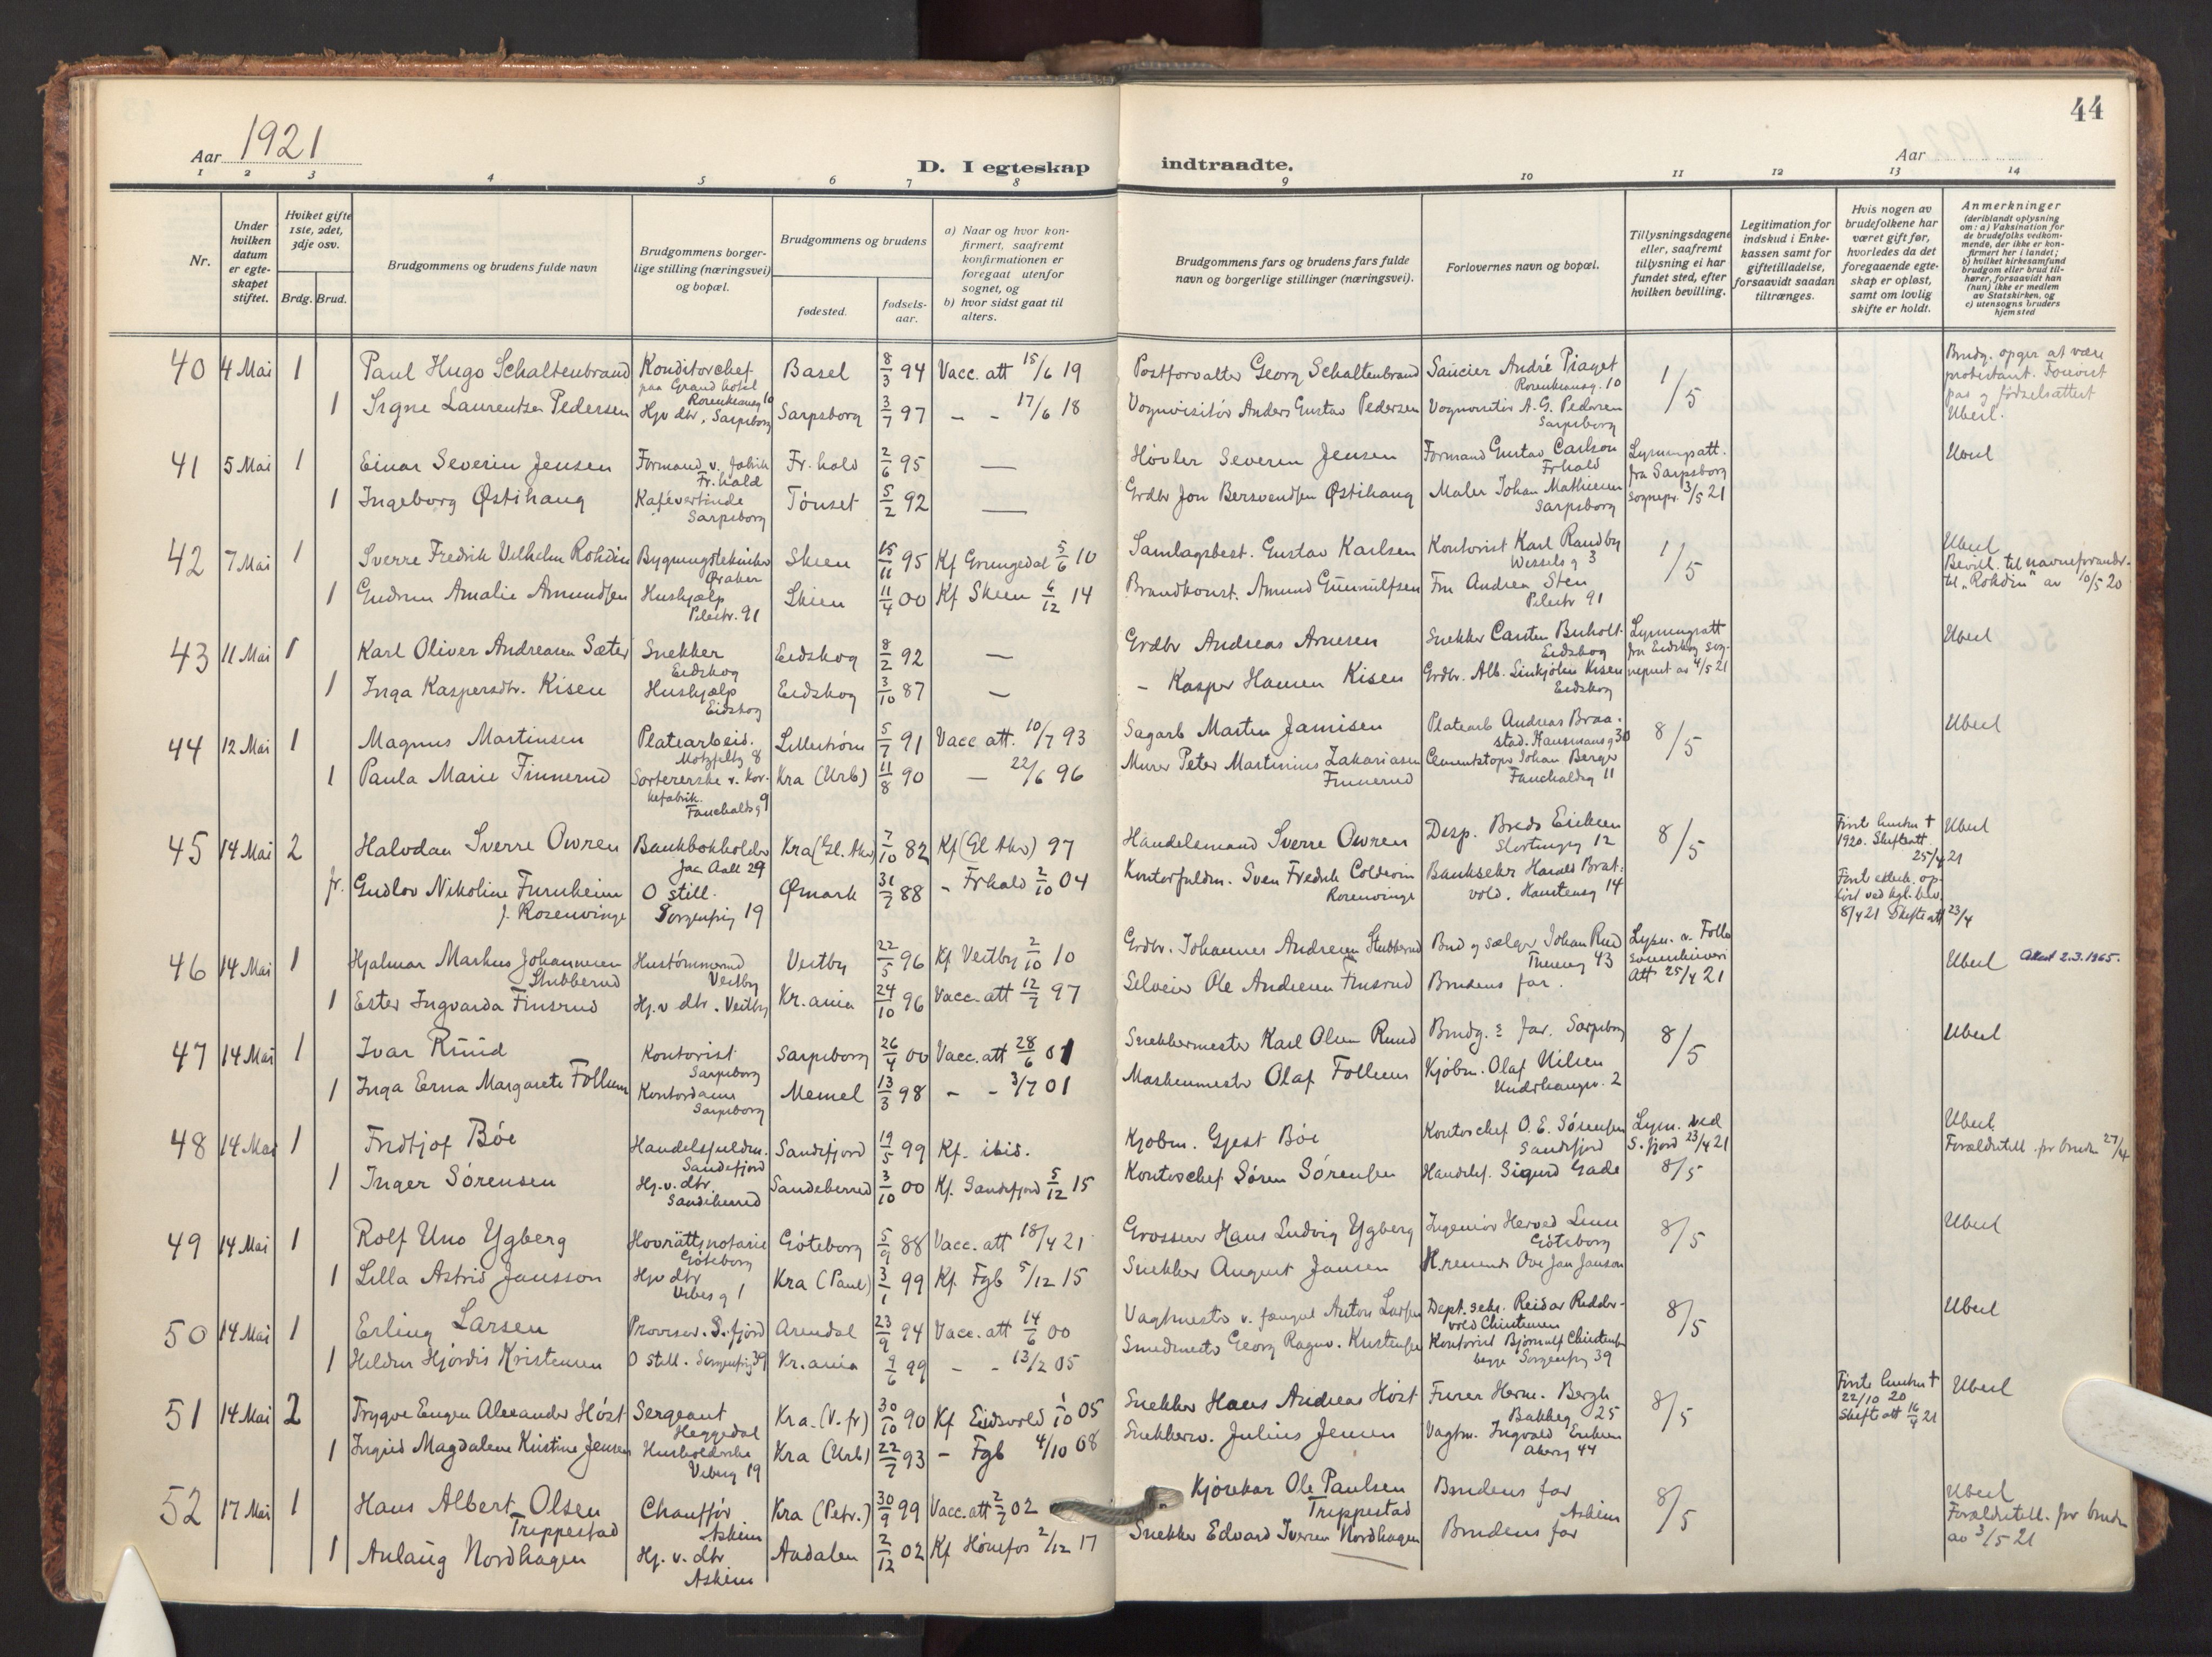 44
Aar 1921
D. I egteskap indtraadte.
Aar
1 2 3 4 5 6 7 8 9 10 11 12 13 14
Nr.
Under hvilken datum er egteskapet stiftet.
Hvilket gifte 1ste, 2det, 3dje osv.
Brdg. Brud.
Brudgommens og brudens fulde navn
Brudgommens borgerlige stilling (næringsvei) og bopæl.
Brudgommens og brudens
fødested.
fødsels-aar.
a) Naar og hvor konfirmert, saafremt konfirmationen er foregaat utenfor sognet, og
b) hvor sidst gaat til alters.
Brudgommens fars og brudens fars fulde navn og borgerlige stillinger (næringsvei).
Forlovernes navn og bopæl.
Tillysningsdagene eller, saafremt tillysning ei har fundet sted, efter hvilken bevilling.
Legitimation for indskud i Enkekassen samt for giftetilladelse, forsaavidt saadan tiltrænges.
Hvis nogen av brudefolkene har været gift før, hvorledes da det foregaaende egteskap er opløst, samt om lovlig skifte er holdt.
Anmerkninger
(deriblandt oplysning om: a) Vaksination for de brudefolks vedkommende, der ikke er konfirmert her i landet; b) hvilket kirkesamfund brudgom eller brud tilhører, forsaavidt han (hun) ikke er medlem av Statskirken, og c) utensogns bruders hjemsted
40 4 Mai 1 Paul Hugo Schaltenbrand Konditorchef paa Grand hotel Rosenkransg 10 Basel 8/3 94 Vacc. att 15/6 19 Postforvalter Georg Schaltenbrand Saucier André Piaget Rosenkransg. 10 1/5 Brudg. opgir at være protestant. Forevist pas og fødselsattest Uberl.
1 Signe Laurentze Pedersen Hjv dtr, Sarpsborg Sarpsborg 3/7 97 – – 17/6 18 Vognvisitör Anders Gustav Pedersen Vognvisitör A. G. Pedersen Sarpsborg
41 5 Mai 1 Einar Severin Jensen Formand v. fabrik Fr.hald Fr. hald 2/6 95 — Høvler Severin Jensen Formand Gustav Carlson Frhald Lysningsatt. fra Sarpsborg sognepr. 3/5 21 Uberl
1 Ingeborg Østihaug Kafévertinde Sarpsborg Tönset 5/2 92 — Grdbr Jon Bersvendsen Østihaug Maler Johan Mathiesen Sarpsborg
42 7 Mai 1 Sverre Fredrik Vilhelm Rohdin Bygningstekniker Skien 15/11 95 Kf Grungedal 5/6 10 Samlagsbest. Gustav Karlsen Kontorist Karl Randby Wessels g 3 1/5 Uberl Bevill. til navneforandr. til „Rohdin" av 10/5 20
1 Gudrun Amalie Amundsen Hushjælp Pilestr. 91 Skien 11/4 00 Kf Skien 6/12 14 Brandkonst. Amund Gunnulfsen Fru Andrea Sten Pilestr 91
43 11 Mai 1 Karl Oliver Andreasen Sæter Snekker Eidskog Eidskog 8/2 92 — Grdbr Andreas Arnesen Snekker Carsten Buholt Eidskog Lysningsatt fra Eidskog sogneprest av 4/5 21 Uberl
1 Inga Kaspersdtr. Kisen Hushjælp Eidskog Eidskog 3/10 87 — – Kasper Hansen Kisen Grdbr. Alb. Linkjølen Kisen Eidskog
44 12 Mai 1 Magnus Martinsen Platearbeid. Motzfeltg 8 Lillestrøm 5/7 91 Vacc att. 10/7 93 Sagarb Martin Jamisen Platearb Andreas Braastad. Hausmansg 30 8/5 Uberl
1 Paula Marie Finnerud Sorterske v. korkefabrik. Fauchaldsg 9 Kra (Urb) 11/8 90 — 22/6 96 Murer Peter Martinius Zakariasen Finnerud Cementstøper Johan Berger Fauchaldsg 11
45 14 Mai 2 Halvdan Sverre Owren Bankbokholder Jac Aall 29 Kra (Gl. Aker) 7/10 82 Kf (Gl Aker) 97 Handelsmand Sverre Owren Disp. Bredo Eriksen Stortingsg 12 8/5 Første hustru † 1920. Skifteatt. 25/4 21 Uberl
fr. Gudlov Nikoline Furuheim f. Rosenvinge O still. Sorgenfrig 19 Ømark 31/7 88 – Frhald 2/10 04 Kontorfuldm. Sven Fredrik Colderin Rosenvinge Banksekr Harald Bratvold. Hansteensg 14 Først ektesk. opløst ved kgl. bev. 8/4 21 Skifteatt 23/4
46 14 Mai 1 Hjalmar Markus Johannesen Stubberud Hustømmermd Vestby Vestby 22/5 96 Kf Vestby 2/10 10 Grdbr. Johannes Andresen Stubberud Bud og sælger Johan Rud Thereseg 43 Lysn. v. Follo sorenskriveri Att 25/4 21 Uberl Attest 2.3.1965.
1 Ester Ingvarda Finsrud Hj.v dtr. Vestby Kr.ania 24/10 96 Vacc. att 12/7 97 Selveier Ole Andresen Finsrud Brudens far.
47 14 Mai 1 Ivar Ruud Kontorist Sarpsborg Sarpsborg 26/4 00 Vacc. att 28/6 01 Snekkermester Karl Olsen Ruud Brudg.s far. Sarpsborg 8/5 Uberl
1 Inga Erna Margarete Follum Kontordame Sarpsborg Memel 13/3 98 – – 3/7 01 Maskinmester Olaf Follum Kjøbm. Olaf Nilsen Underhaugsv. 2
48 14 Mai 1 Fridtjof Böe Handelsfuldm. Sandefjord Sandefjord 19/5 99 Kf. ibid. Kjøbm. Gjest Böe Kontorchef O. E. Sørensen Sandefjord Lysn. ved S. fjord 23/4 21 Uberl. Forældretill. for bruden 27/4
1 Inger Sörensen Hj.v. dtr. Sandeherred Sandeherred 3/10 00 Kf. Sandefjord 5/12 15 Kontorchef Sören Sörensen Handelsf. Sigurd Gade 8/5
49 14 Mai 1 Rolf Uno Ygberg Hovrättsnotarie Göteborg Göteborg 5/9 88 Vacc. att 18/4 21 Grosserer Hans Ludvig Ygberg Ingeniör Herved Göteborg 8/5 Uberl
1 Lilla Astrid Jansson Hjv dtr Vibes g 1 Kra (Paul) 3/1 99 Kf. Fgb 5/12 15 Snekker August Jansen Ove Jan Janson
50 14 Mai 1 Erling Larsen Provisor. S.fjord Arendal 23/9 94 Vacc. att 14/6 00 Vagtmester v. fængsel Anton Larsen Dept. sekr. Reidar Reddervold Christensen 8/5 Uberl
1 Hildur Hjördis Kristensen O still. Sorgenfrig 39 Kr.ania 9/6 99 – – 13/2 05 Smedmester Georg Ragnv. Kristensen Kontorist Bjørnulf Christensen begge Sorgenfrig 39
51 14 Mai 2 Trygve Eugen Alexander Höst Sergeant Heggedal Kra. (V. fr) 30/10 90 Kf Eidsvold 1/10 05 Snekker Hans Andreas Höst Furer Herm. Bergh Bakkeg 25 8/5 Første hustru † 22/10 20 Skifteatt 16/4 21 Uberl
1 Ingrid Magdalene Kristine Jensen Husholderske Vibesg 19 Kra (Urb) 22/7 93 – Fgb 4/10 08 Snekkersv. Julius Jensen Vagtm. Ingvald Eriksen Akersg 44
52 17 Mai 1 Hans Albert Olsen Trippestad Chauffør Askim Kra (Petr.) 30/9 99 Vacc. att 2/7 02 Kjörekar Ole Paulsen Trippestad Brudens far Askim 8/5 Uberl Forældretill. for bruden av 3/5 21
1 Anlaug Nordhagen Hj. v. dtr Askim Aadalen 2/12 02 Kf Hönefos 2/12 17 Snekker Edvard Iversen Nordhagen Brudens far